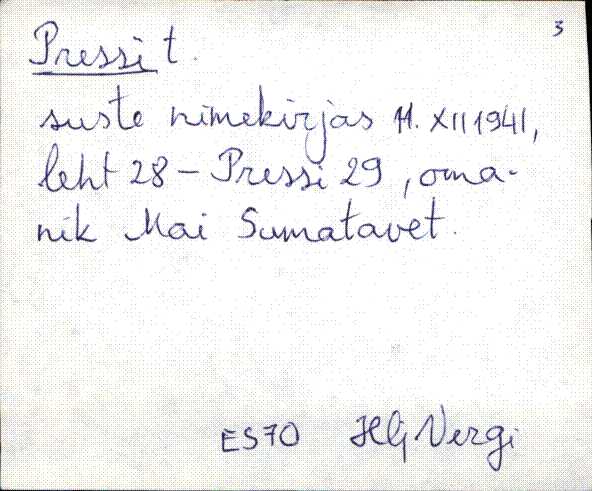 3
Pressi t.
suste nimekirjas 11. XII 1941,
leht 28 – Pressi 29, oma-
nik Mai Sumatavet.
ES70 Hlj Vergi